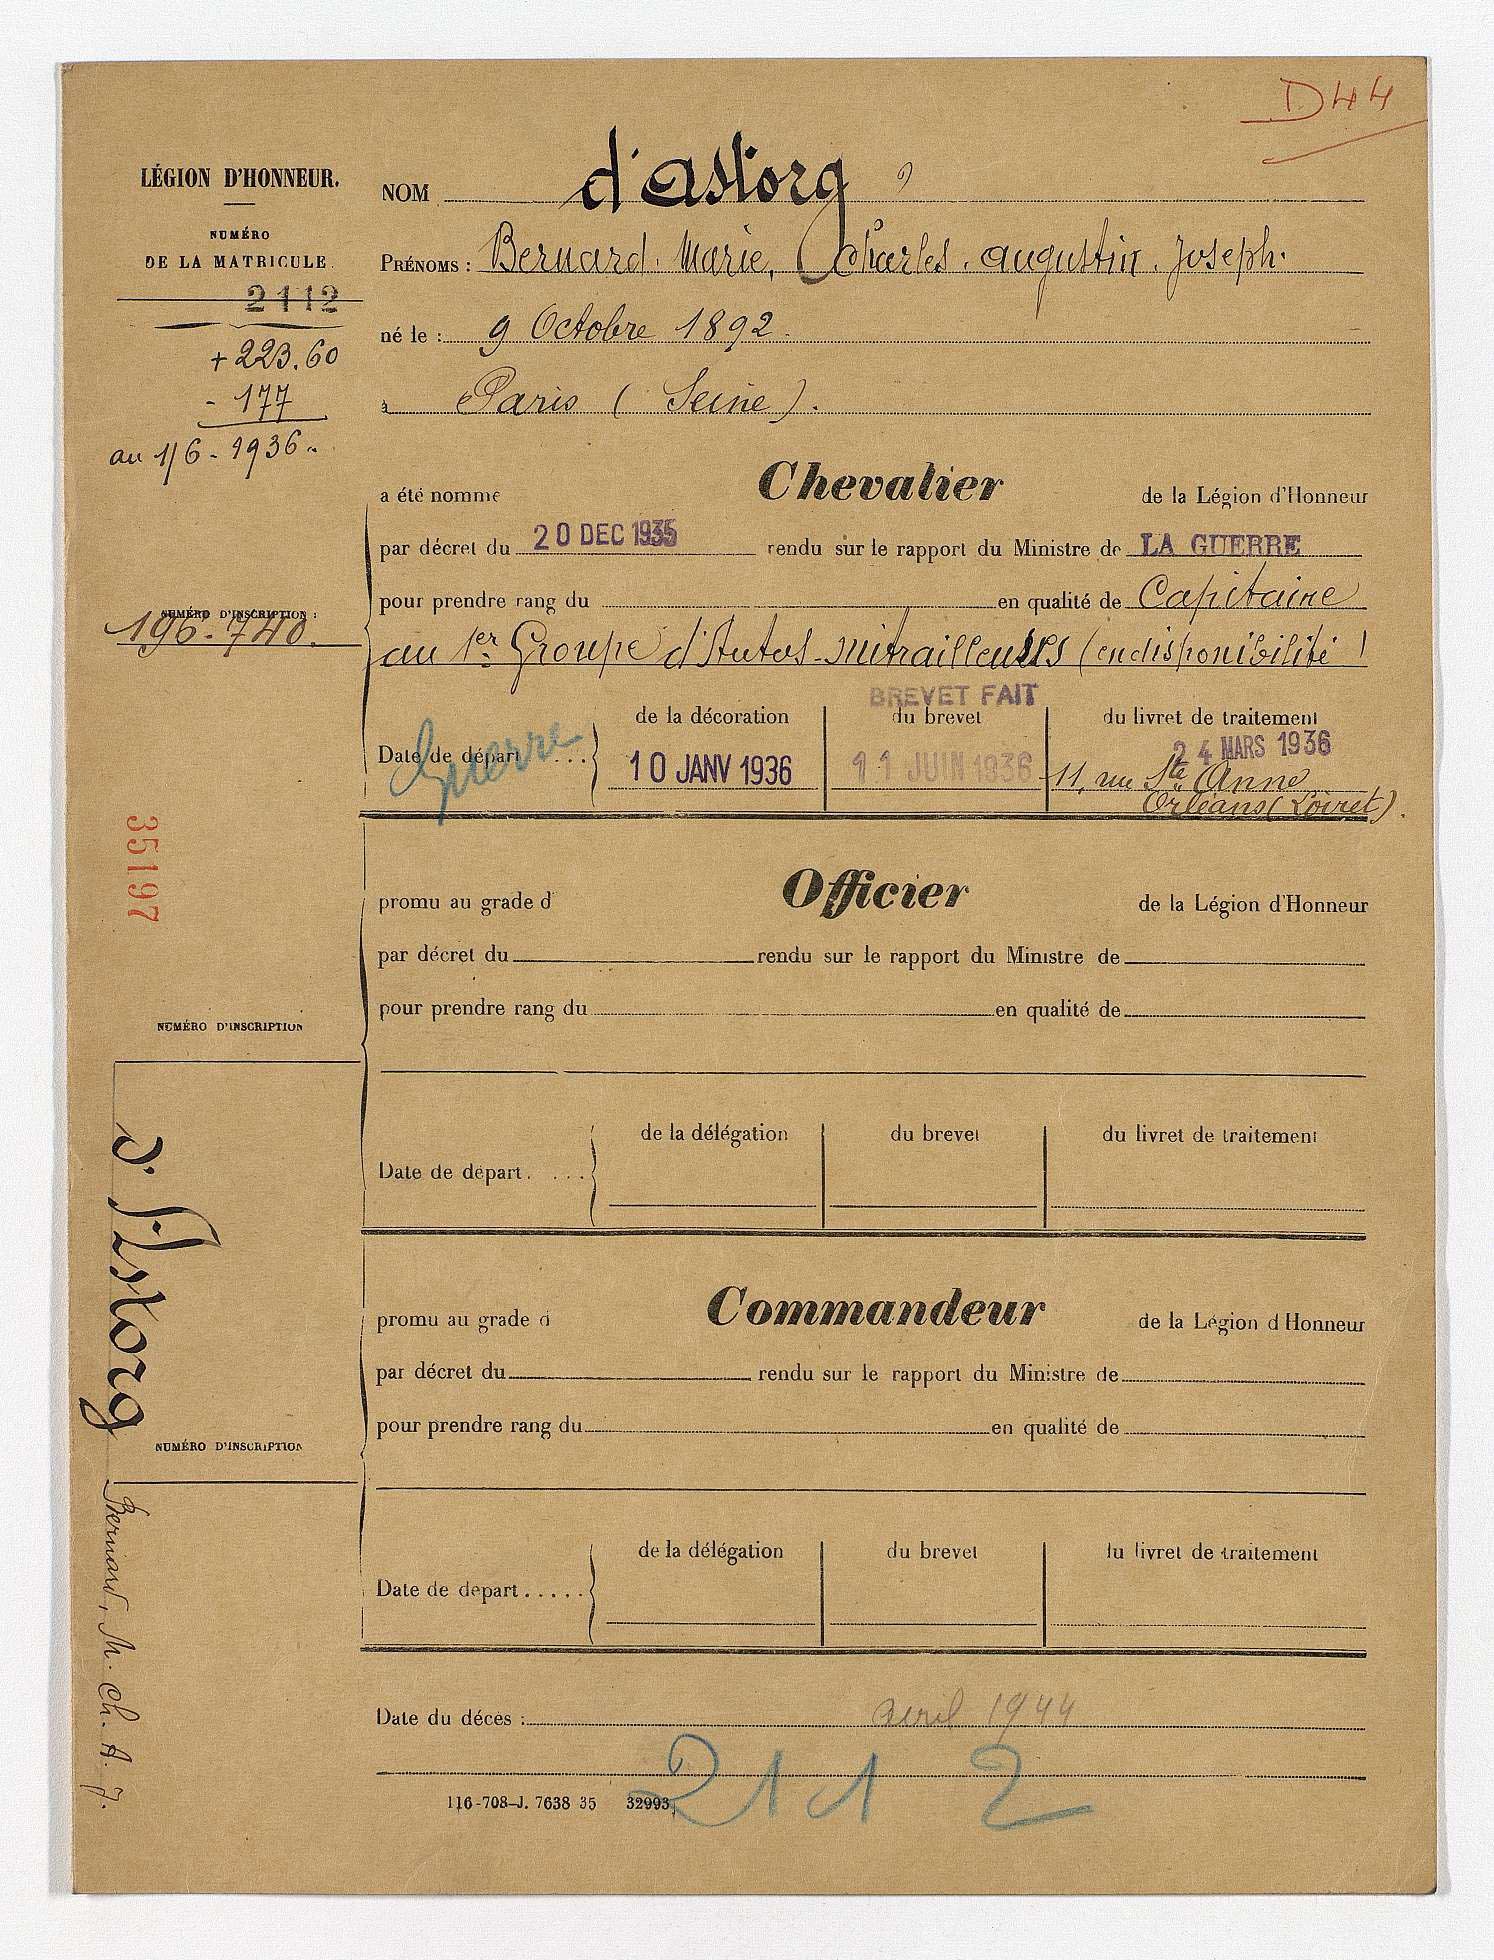 D44
LÉGION D'HONNEUR.
NUMÉRO
DE LA MATRICULE.
2112
+ 223.60
- 177
au 1/6 - 1936.
NOM d'Astorg
PRÉNOMS : Bernard. Marie, Charles. Augustin. Joseph.
né le : 9 Octobre 1892.
à Paris (Seine).
a été nommé Chevalier de la Légion d'Honneur
par décret du 20 DEC 1935 rendu sur le rapport du Ministre de LA GUERRE
pour prendre rang du en qualité de Capitaine
NUMÉRO D'INSCRIPTION :
196.740.
au 1er Groupe d'Autos-mitrailleuses (en disponibilité)
BREVET FAIT
de la décoration du brevet du livret de traitement
Date de départ . . .
Guerre
10 JANV 1936 11 JUIN 1936 24 MARS 1936
11, rue Ste Anne
Orléans (Loiret).
35197
promu au grade d Officier de la Légion d'Honneur
par décret du rendu sur le rapport du Ministre de
pour prendre rang du en qualité de
NUMÉRO D'INSCRIPTION
de la délégation du brevet du livret de traitement
Date de départ. . . .
d'Astorg
Bernard, M. Ch. A. J.
promu au grade d Commandeur de la Légion d'Honneur
par décret du rendu sur le rapport du Ministre de
pour prendre rang du en qualité de
NUMÉRO D'INSCRIPTION
de la délégation du brevet du livret de traitement
Date de départ . . . . .
Date du décès : avril 1944
2112
116-708-J. 7638 35 32993.